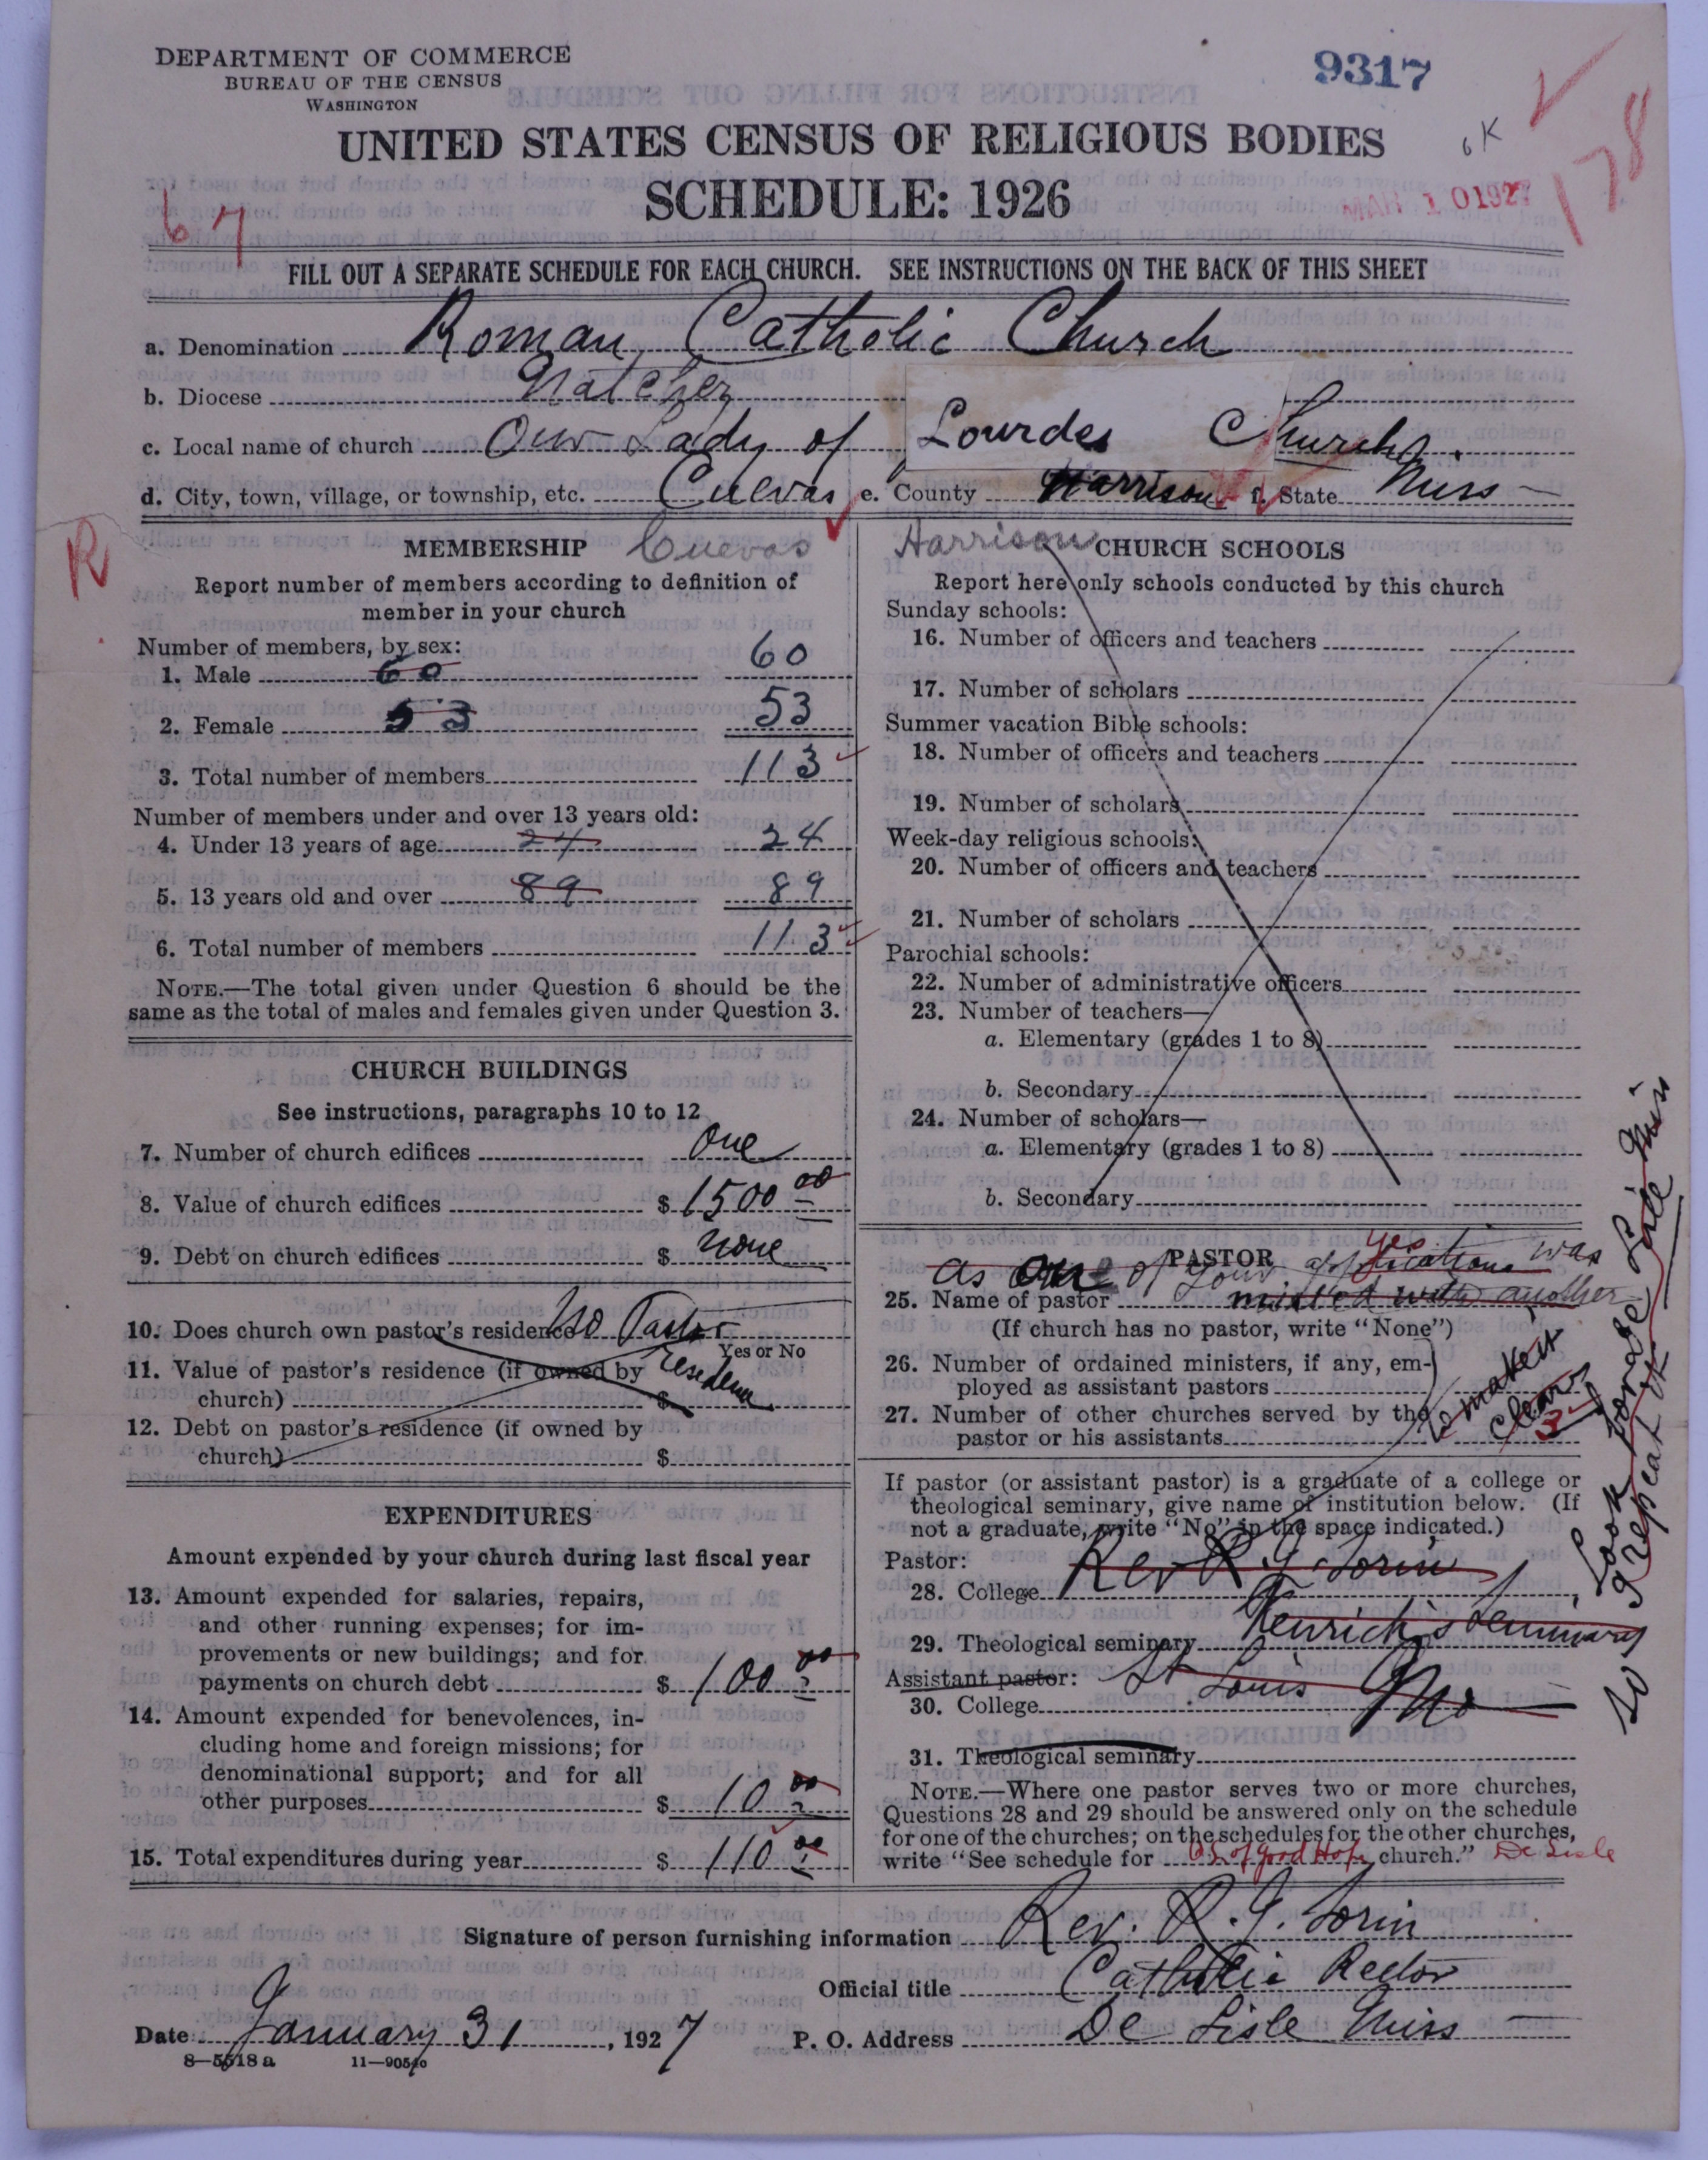 DEPARTMENT OF COMMERCE
BUREAU OF THE CENSUS
WASHINGTON
9317
UNITED STATES CENSUS OF RELIGIOUS BODIES
OK
SCHEDULE: 1926
MAR 10 1927
178
67
FILL OUT A SEPARATE SCHEDULE FOR EACH CHURCH. SEE INSTRUCTIONS ON THE BACK OF THIS SHEET
a. Denomination Roman Catholic Church
b. Diocese Natchez
c. Local name of church Our Lady of Lourdes Church
d. City, town, village, or township, etc. Cuevas e. County Harrison f. State Miss
R
MEMBERSHIP Cuevas
Report number of members according to definition of
member in your church
Number of members, by sex:
1. Male 60 60
2. Female 53 53
3. Total number of members 113
Number of members under and over 13 years old:
4. Under 13 years of age 24 24
5. 13 years old and over 89 89
6. Total number of members 113
NOTE.—The total given under Question 6 should be the
same as the total of males and females given under Question 3.
CHURCH BUILDINGS
See instructions, paragraphs 10 to 12
7. Number of church edifices one
8. Value of church edifices $ 1500 00
9. Debt on church edifices $ none
10. Does church own pastor's residence No Pastor
Yes or No
residence
11. Value of pastor's residence (if owned by
church) $
12. Debt on pastor's residence (if owned by
church) $
EXPENDITURES
Amount expended by your church during last fiscal year
13. Amount expended for salaries, repairs,
and other running expenses; for im-
provements or new buildings; and for
payments on church debt $ 100 00
14. Amount expended for benevolences, in-
cluding home and foreign missions; for
denominational support; and for all
other purposes $ 10 00
15. Total expenditures during year $ 110 00
Harrison CHURCH SCHOOLS
Report here only schools conducted by this church
Sunday schools:
16. Number of officers and teachers
17. Number of scholars
Summer vacation Bible schools:
18. Number of officers and teachers
19. Number of scholars
Week-day religious schools:
20. Number of officers and teachers
21. Number of scholars
Parochial schools:
22. Number of administrative officers
23. Number of teachers—
a. Elementary (grades 1 to 8)
b. Secondary
24. Number of scholars—
a. Elementary (grades 1 to 8)
b. Secondary
PASTOR yes
as one of your applications was
25. Name of pastor mixed with another
(If church has no pastor, write "None")
26. Number of ordained ministers, if any, em-
ployed as assistant pastors
27. Number of other churches served by the
pastor or his assistants 3
to make it
clear
If pastor (or assistant pastor) is a graduate of a college or
theological seminary, give name of institution below. (If
not a graduate, write "No" in the space indicated.)
Pastor: Rev R. J. Sorin
28. College
29. Theological seminary Kenrick's Seminary
Assistant pastor: St Louis Mo
30. College
31. Theological seminary
NOTE.—Where one pastor serves two or more churches,
Questions 28 and 29 should be answered only on the schedule
for one of the churches; on the schedules for the other churches,
write "See schedule for O. L. of Good Hope church." De Lisle
so I repeat it
Look for De Lisle Miss
Signature of person furnishing information Rev. R. J. Sorin
Official title Catholic Rector
Date January 31, 1927 P. O. Address De Lisle Miss
8—5518 a 11—9054